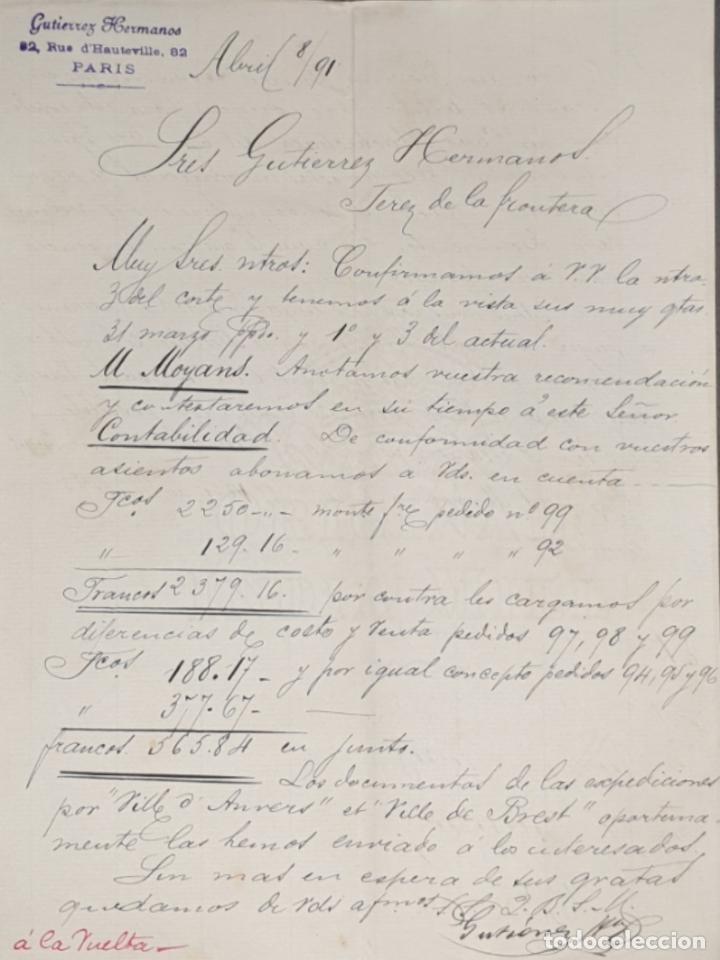 Gutierrez Hermanos
82, Rue d'Hauteville, 82
PARIS
Abril 8/91
Sres Gutierrez Hermanos.
Jerez de la frontera
Muy Sres. ntros: Confirmamos á V.V. la ntra.
3 del corte y tenemos á la vista sus muy gtas.
31 marzo ppdo. y 1º y 3 del actual.
M. Moyans. Anotamos vuestra recomendación
y contestaremos en su tiempo á este Señor
Contabilidad. De conformidad con vuestros
asientos abonamos a Vds. en cuenta
Fcos. 2250 -"- monte fre pedido nº 99
" 129.16- " " " " 92
Francos 2379.16. por contra les cargamos por
diferencias de costo y Venta pedidos 97, 98 y 99
Fcos. 188.17- y por igual concepto pedidos 94, 95 y 96
" 377.67-
francos. 565.84 en junto.
Los documentos de las expediciones
por "Ville d'Anvers" et "Ville de Brest" oportuna-
mente las hemos enviado á los interesados.
Sin mas en espera de sus gratas
quedamos de Vds afmos. S.S. Q.B.S.M.
Gutierrez Hos
á la Vuelta-
todocoleccion.net